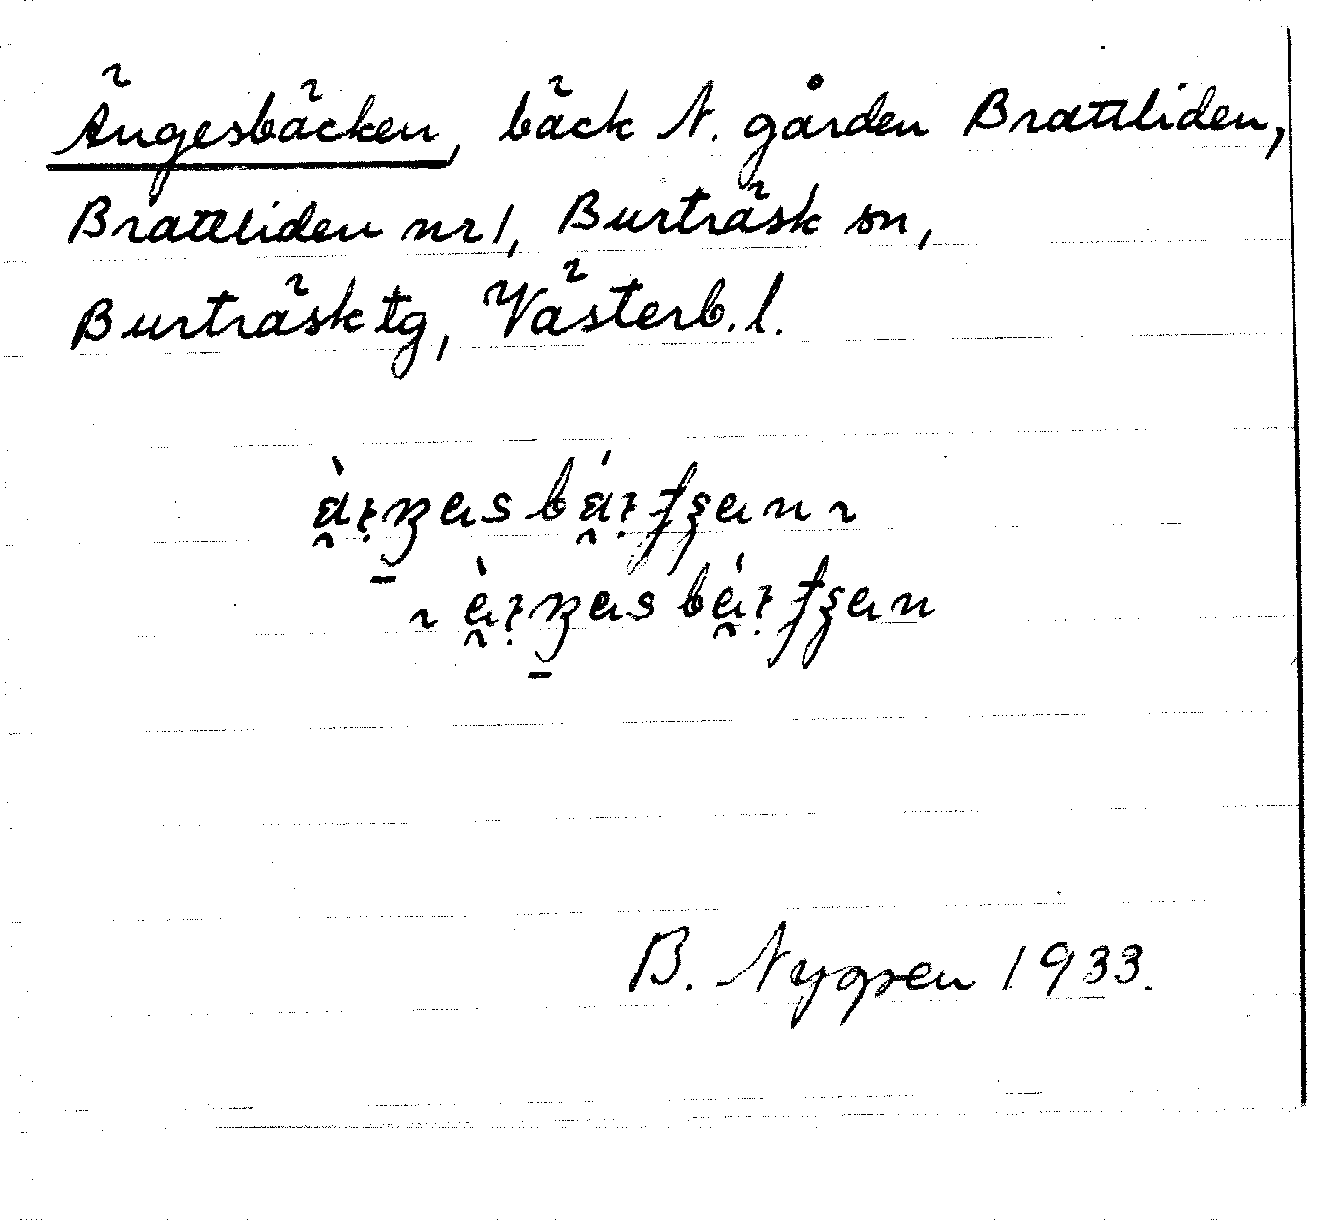 Ängesbäcken, bäck N. gården Brattliden,
Brattliden nr 1, Burträsk sn,
Burträsk tg, Västerb. l.
B. Nygren 1933.